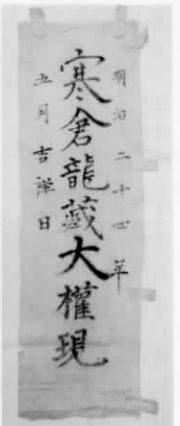 明治二十四年
寒倉龍蔵大權現
五月吉祥日